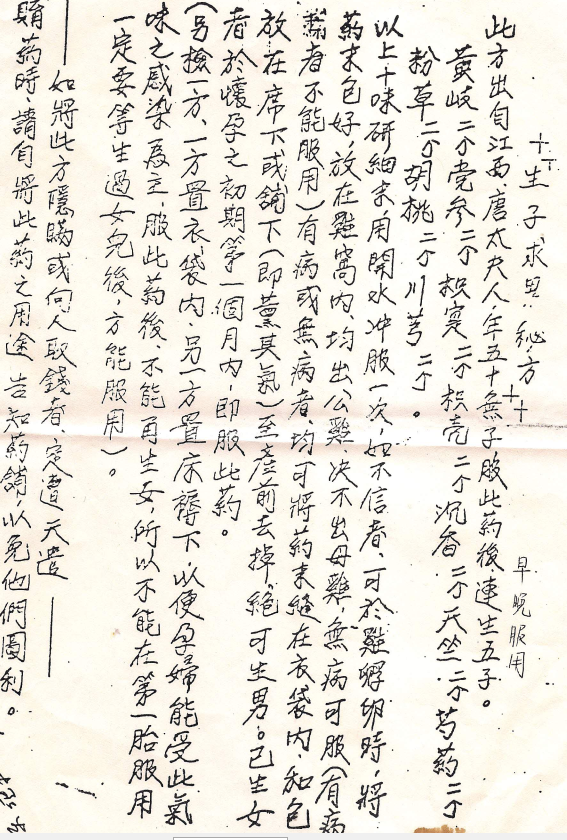 生子求男秘方
早晚服用
此方出自江西.唐太夫人年五十無子服此藥後.連生五子。
黃岐二个党参二个枳實二个枳壳二个沉香二个天竺二个芍藥二个
粉草二个胡桃二个川芎二个。
以上十味研細末.用開水冲服一次,如不信者、可於雞孵卵時,將
葯末包好,放在雞窩内、均出公雞、决不出母雞,無病可服(有病
者不能服用)有病或無病者、均可將葯末縫在衣袋内,和包
放在席下或舖下(即薰其氣)至產前去掉.絕可生男。已生女
者於懷孕之初期第一個月内,即服此葯。
(另撿一方、一方置衣袋内、另一方置床褥下、以便孕婦能受此氣
味之感染為主,服此葯後、不能再生女,所以不能在第一胎服用
一定要等生過女兒後,方能服用)。
如將此方隱瞞或向人取錢者、定遭天譴
購葯時、請勿將此葯之用途告知葯舖,以免他們圖利。